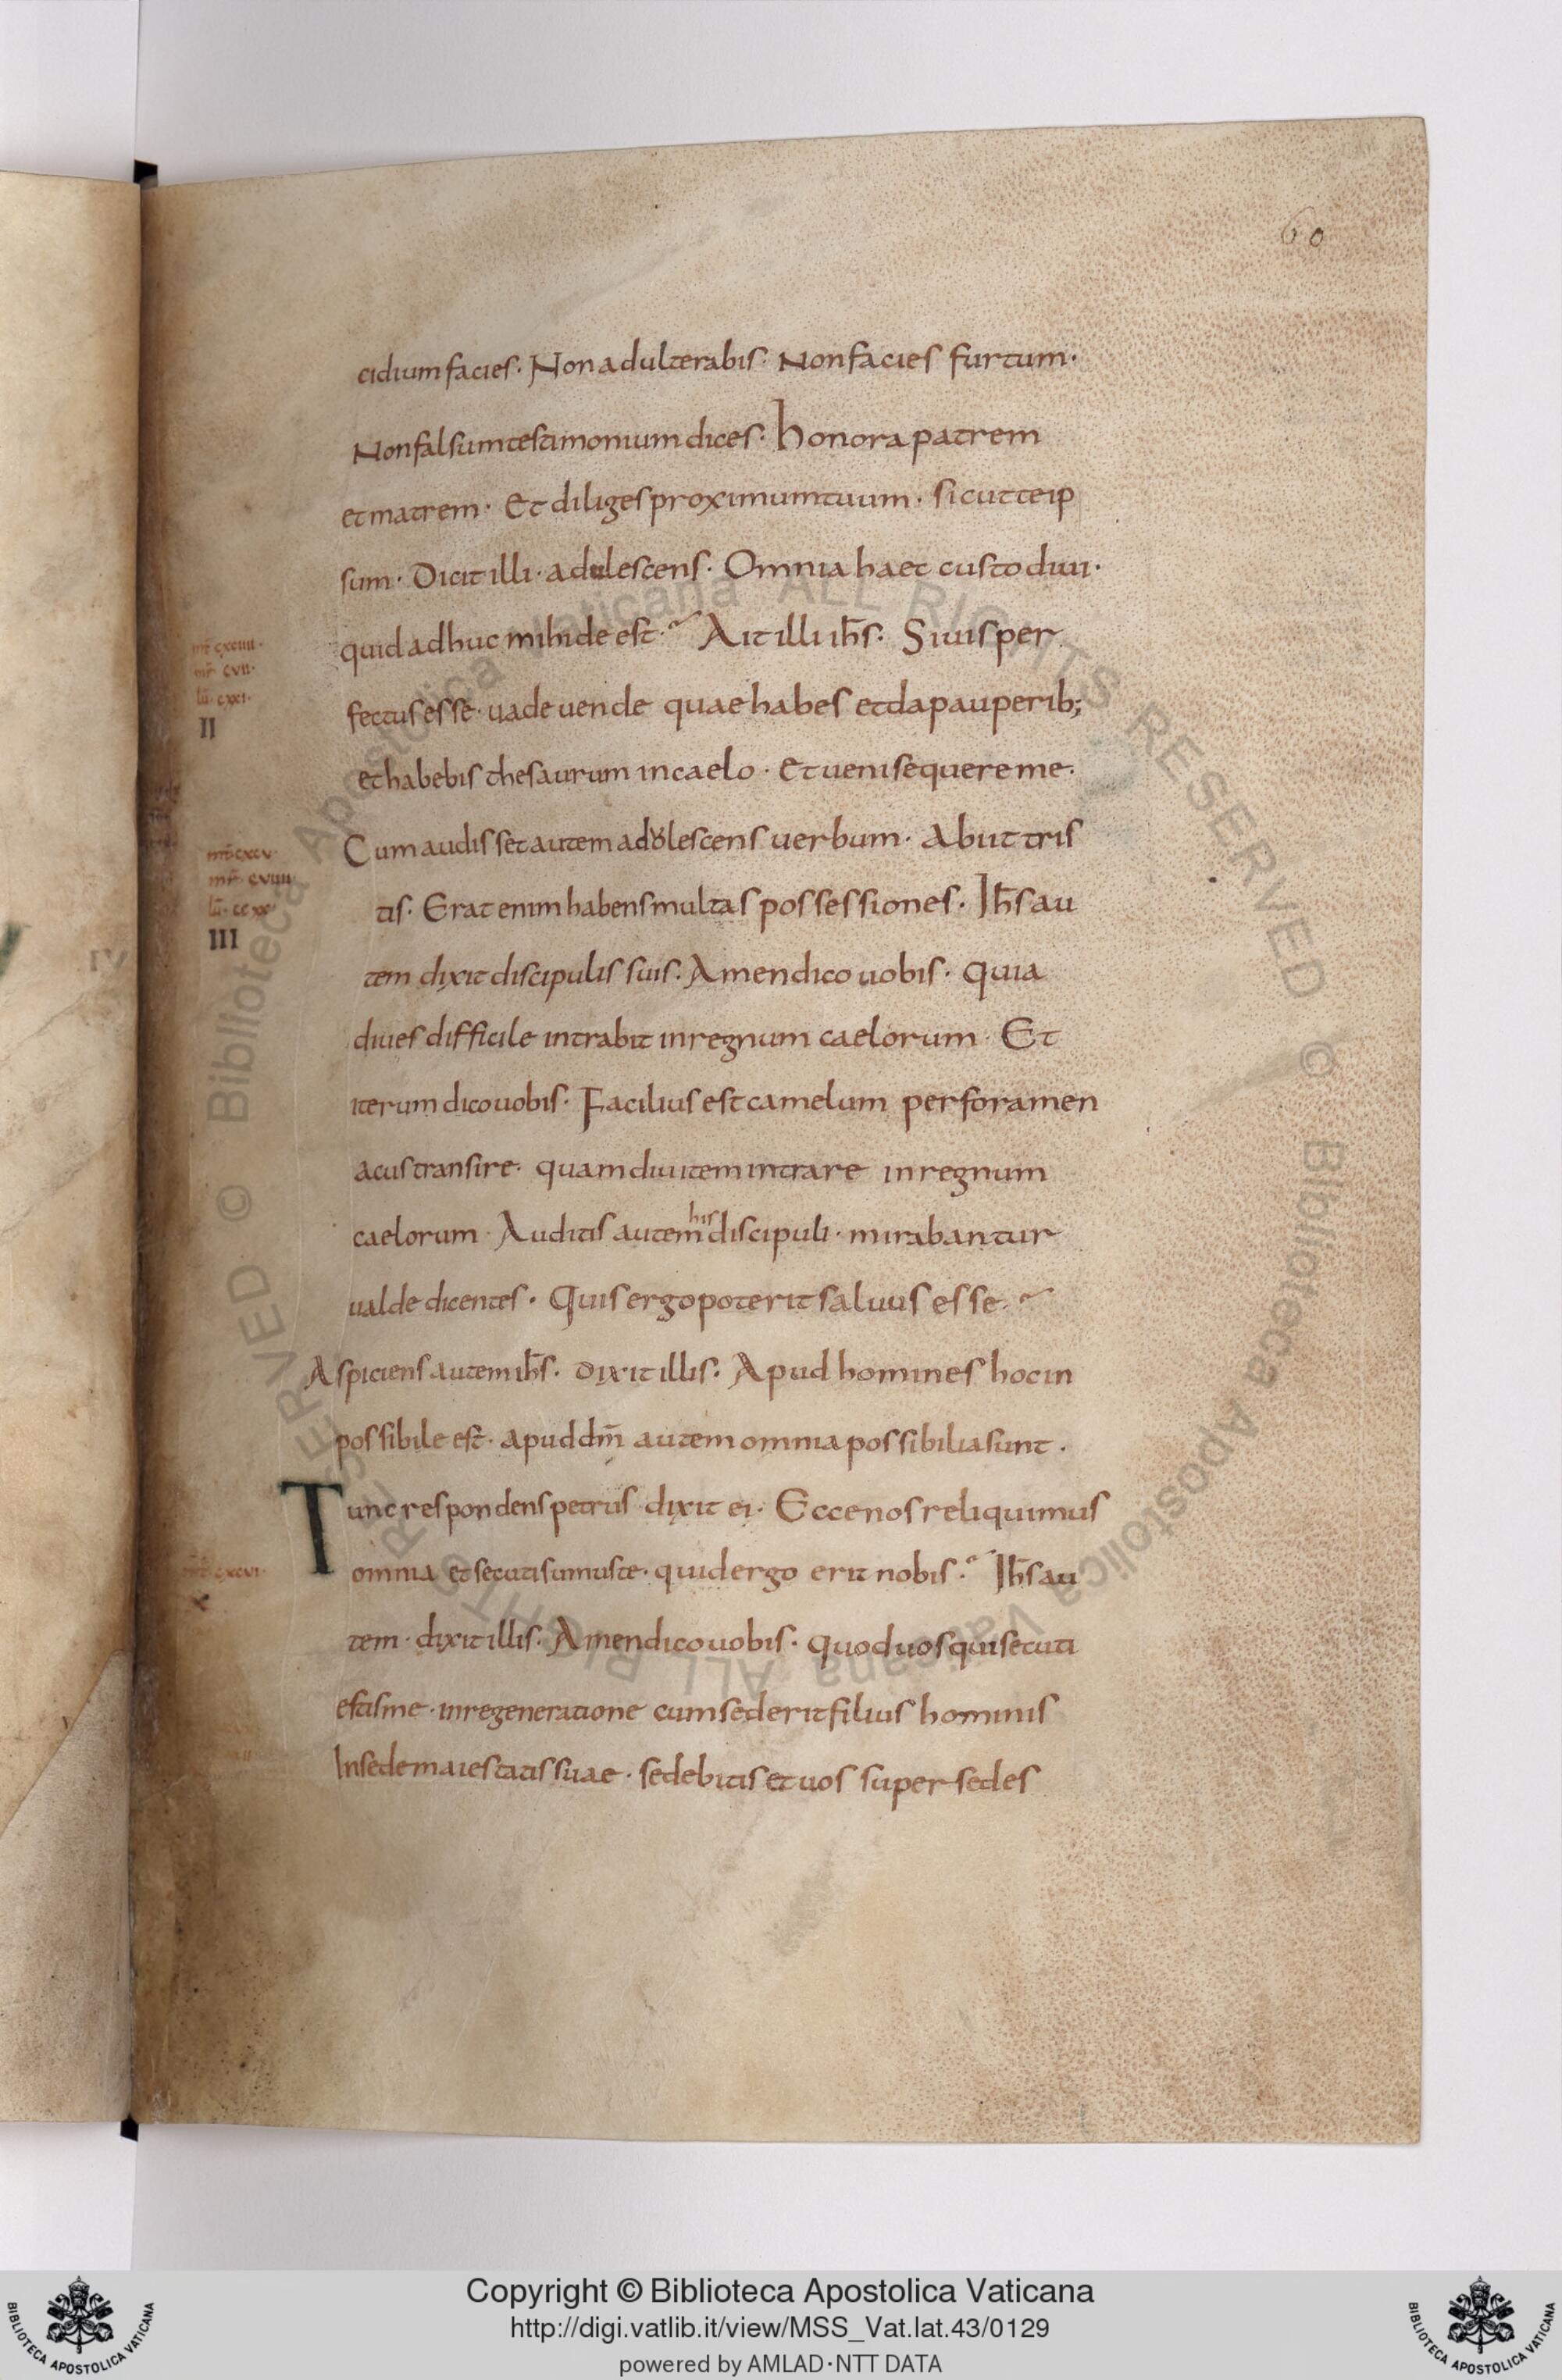 60
cidium facies · Non adulterabis · Non facies furtum ·
Non falsum testimonium dices · honora patrem
et matrem · Et diliges proximum tuum · sicut teip
sum · Dicit illi · adulescens · Omnia haec custodiui ·
quid adhuc mihi deest · Ait illi ihs̄ · Si uis per
mt̄ cxciiii ·
mr̄ cvii ·
fectus esse · uade uende quae habes et da pauperib;
II
et habebis thesaurum in caelo · Et ueni sequere me ·
Cum audisset autem adolescens uerbum · Abiit tris
mt̄ cxcv ·
mr̄ cviiii
tis · Erat enim habens multas possessiones · Ihs̄ au
III
tem dixit discipulis suis · Amen dico uobis · quia
diues difficile intrabit in regnum caelorum · Et
iterum dico uobis · Facilius est camelum per foramen
acus transire · quam diuitem intrare in regnum
his
caelorum · Auditis autem discipuli · mirabantur
ualde dicentes · Quis ergo poterit saluus esse
Aspiciens autem ihs̄ · dixit illis · Apud homines hoc in
possibile est · apud dm̄ autem omnia possibilia sunt ·
Tunc respondens petrus dixit ei · Ecce nos reliquimus
omnia et secuti sumus te · quid ergo erit nobis · Ihs̄ au
cxcvi ·
x
tem · dixit illis · Amen dico uobis · quod uos qui secuti
estis me · in regeneratione cum sederit filius hominis
In sede maiestatis suae · sedebitis et uos super sedes
© Biblioteca Apostolica Vaticana ALL RIGHTS RESERVED © Biblioteca Apostolica Vaticana ALL RIGHTS RESERVED
Copyright © Biblioteca Apostolica Vaticana
http://digi.vatlib.it/view/MSS_Vat.lat.43/0129
powered by AMLAD·NTT DATA
BIBLIOTECA APOSTOLICA VATICANA
BIBLIOTECA APOSTOLICA VATICANA